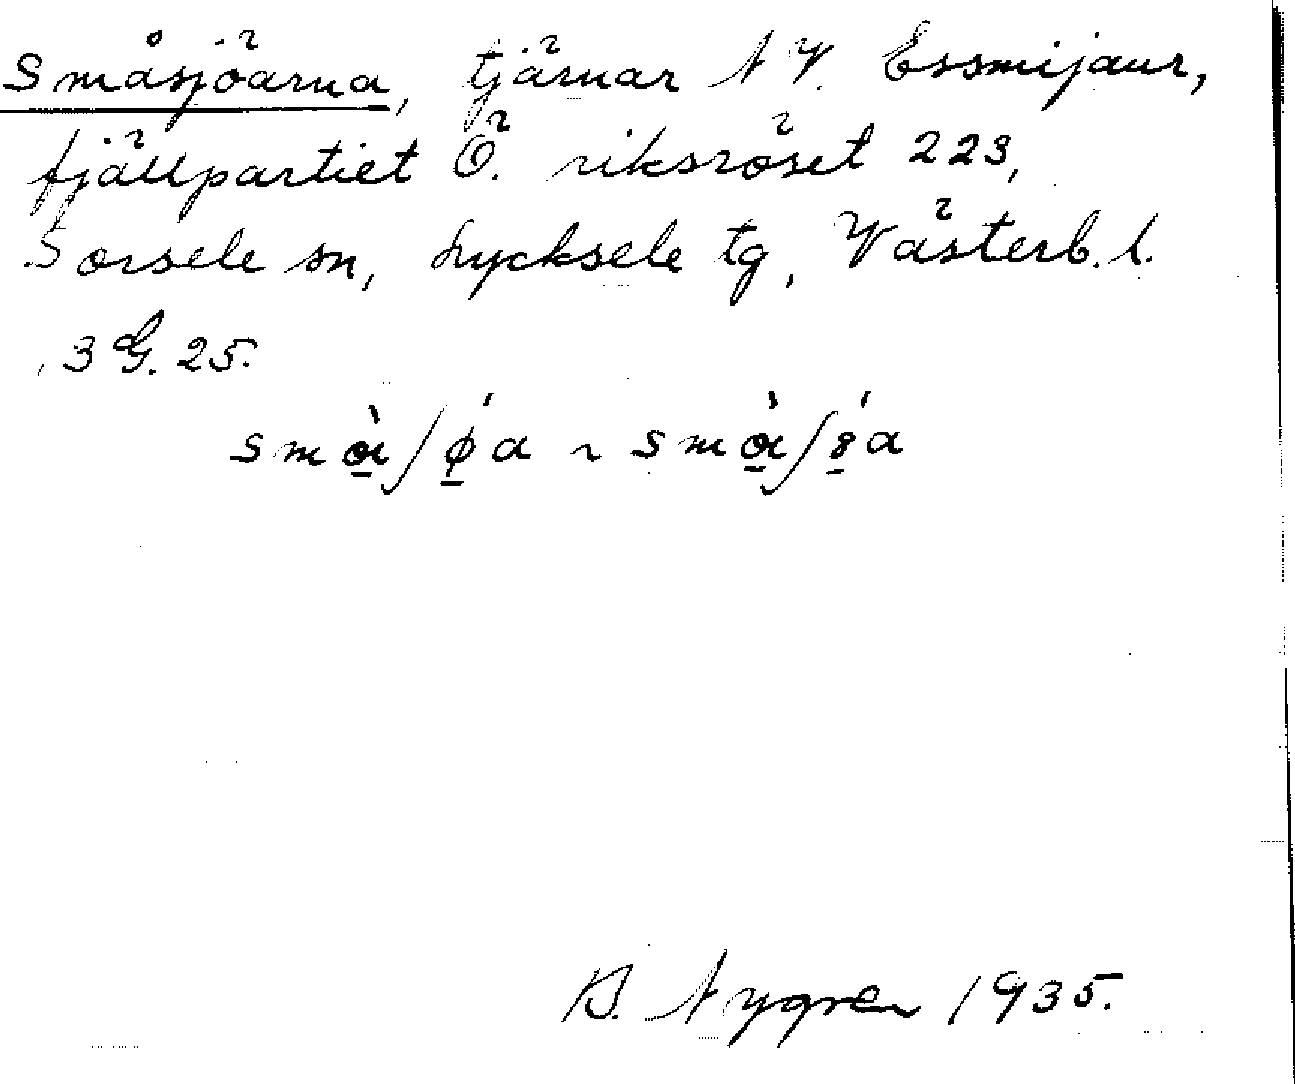 Småsjöarna, tjärnar NV. Essmijaur,
fjällpartiet Ö. riksröset 223,
Sorsele sn, Lycksele tg, Västerb. l.
3 G. 25.
B. Nygren 1935.